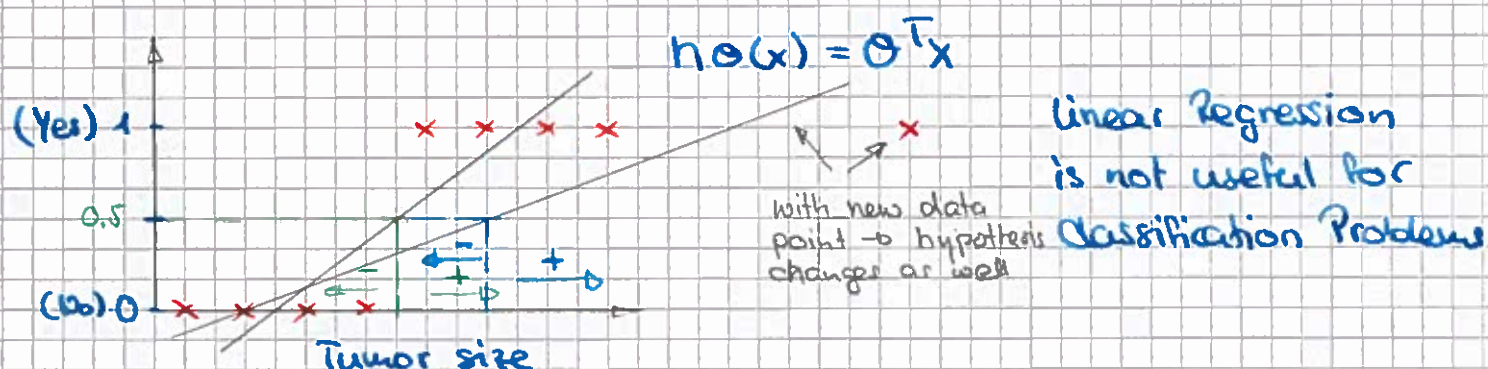 hθ(x) = θᵀx
(Yes) 1
0.5
(No) 0
- +
- + +
Tumor size
with new data
point → hypothesis
changes as well
Linear Regression
is not useful for
Classification Problems